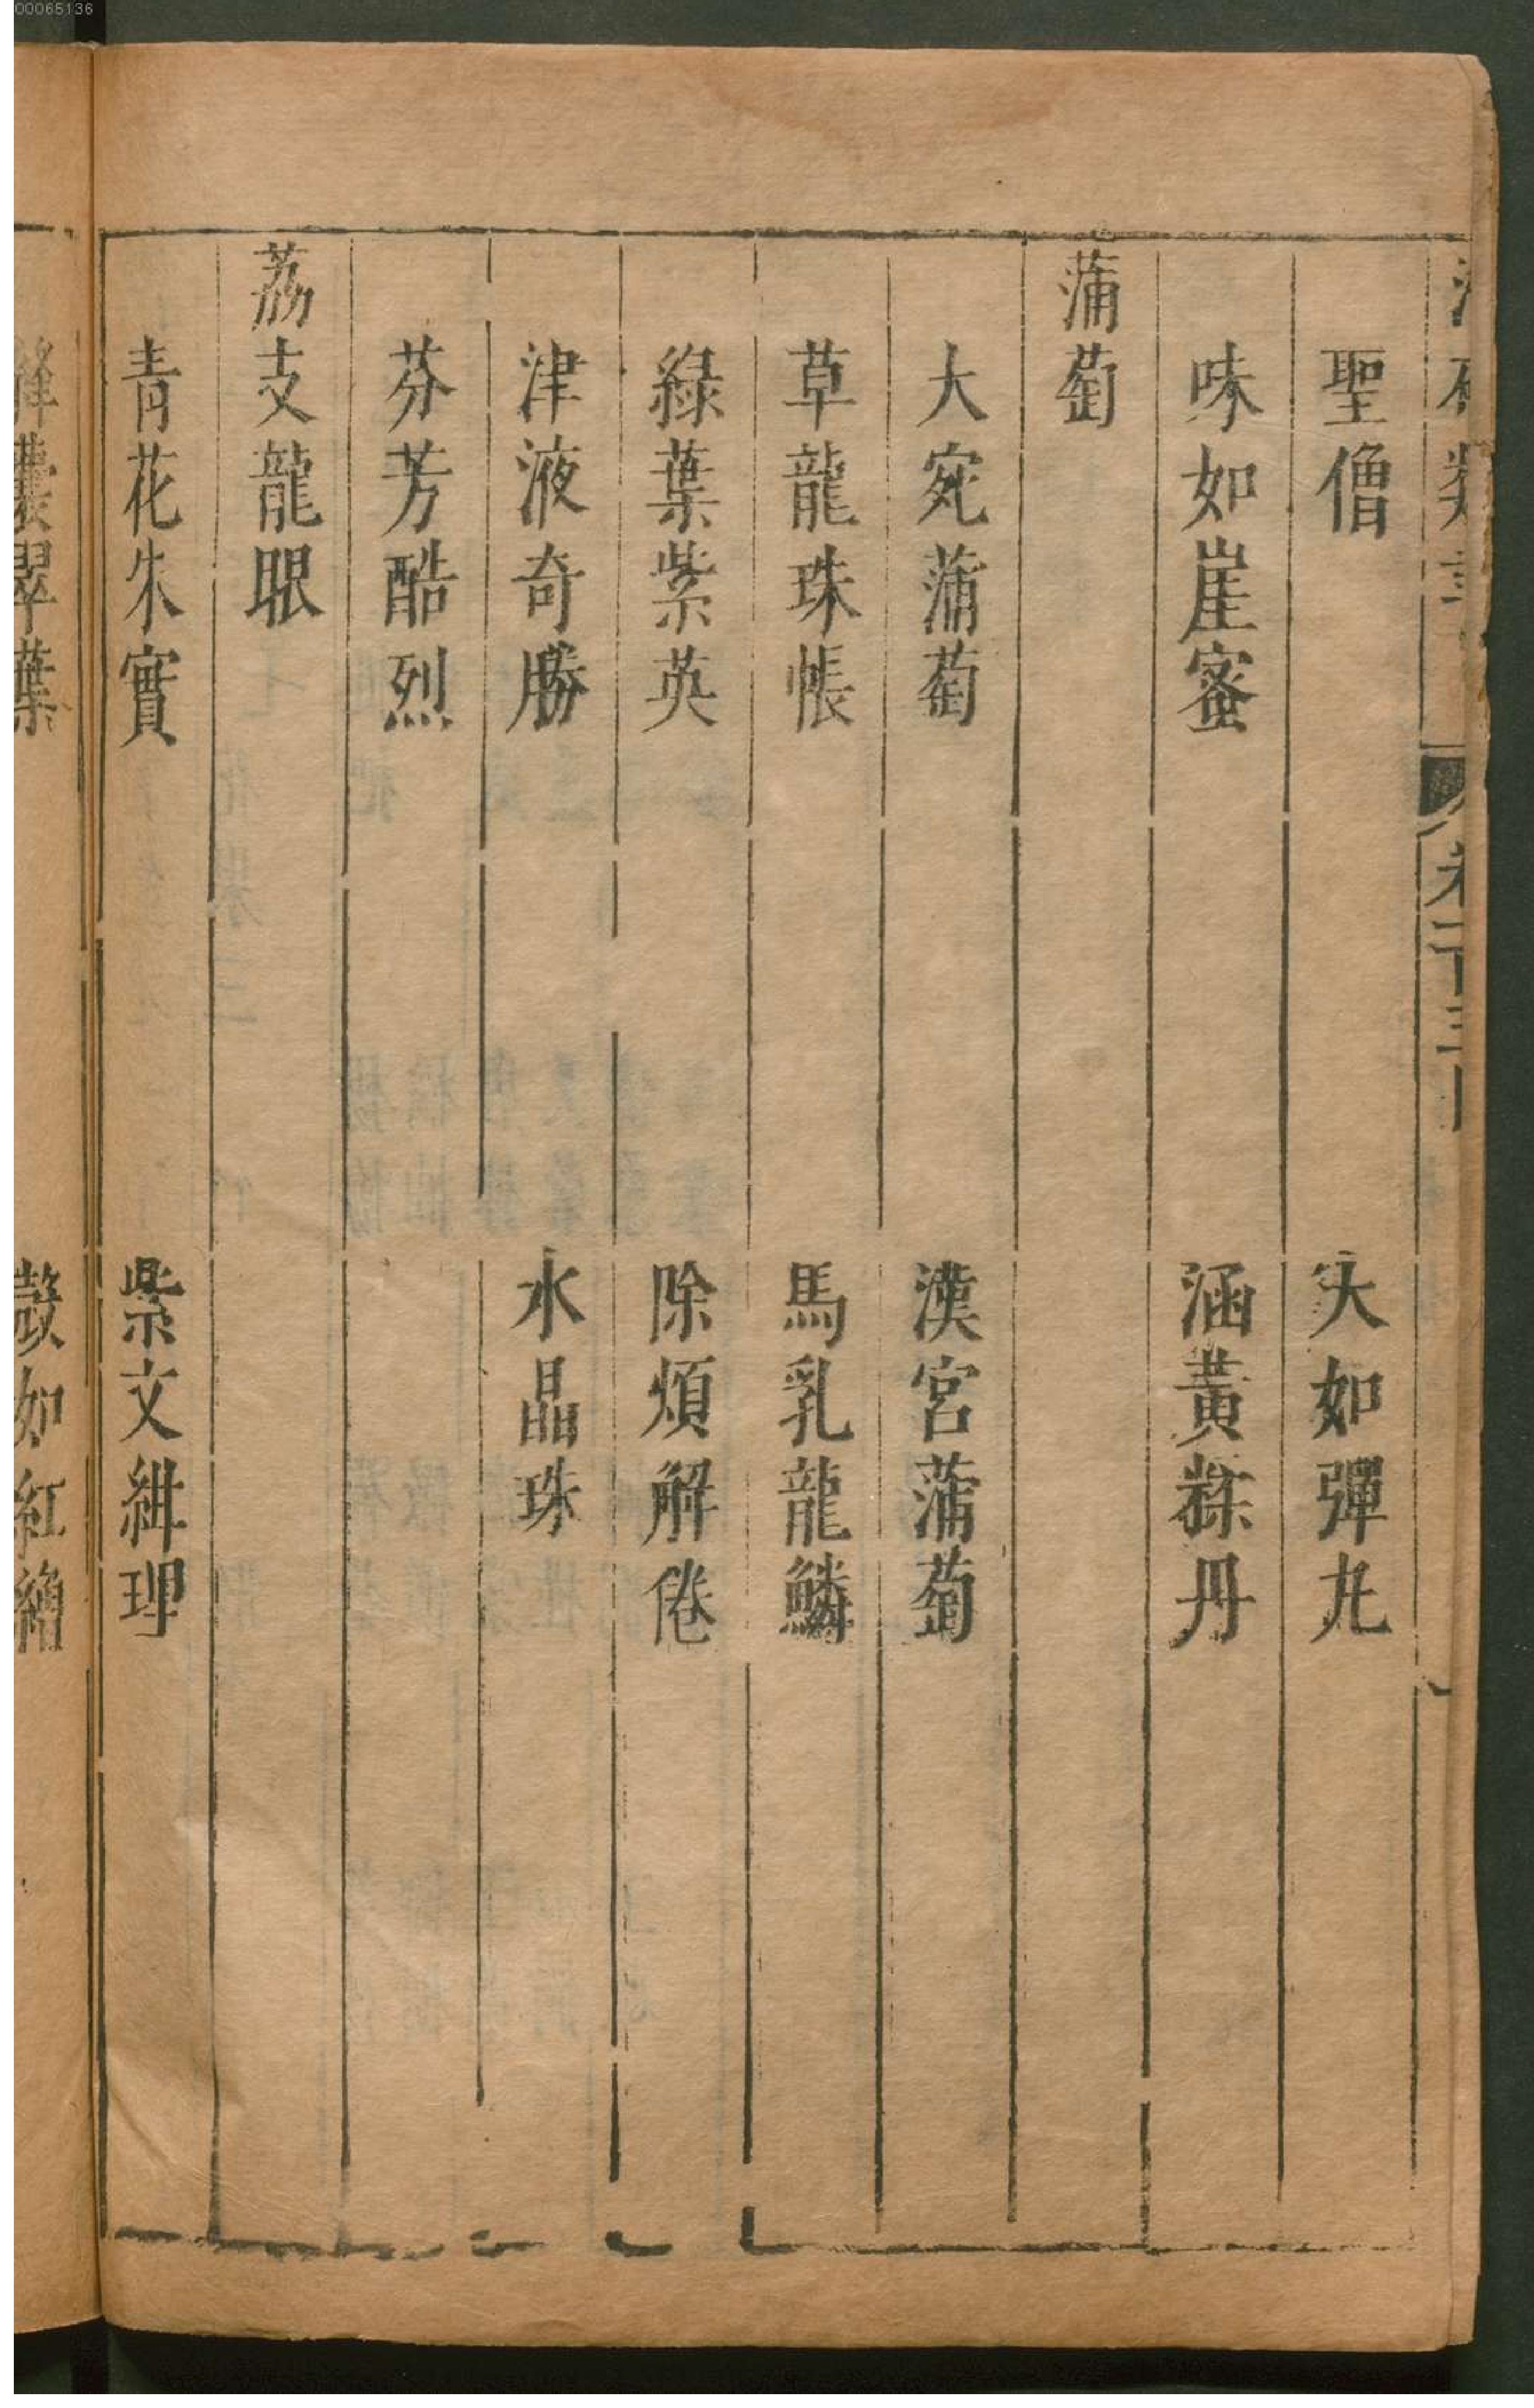 00065136
聖僧　大如彈丸
味如崖蜜　涵黃糅丹
蒲萄
大宛蒲萄　漢宮蒲萄
草龍珠帳　馬乳龍鱗
綠葉紫英　除煩解倦
津液奇勝　水晶珠
芬芳酷烈
荔支龍眼
青花朱實　紫文紺理
翠葉　如紅繒